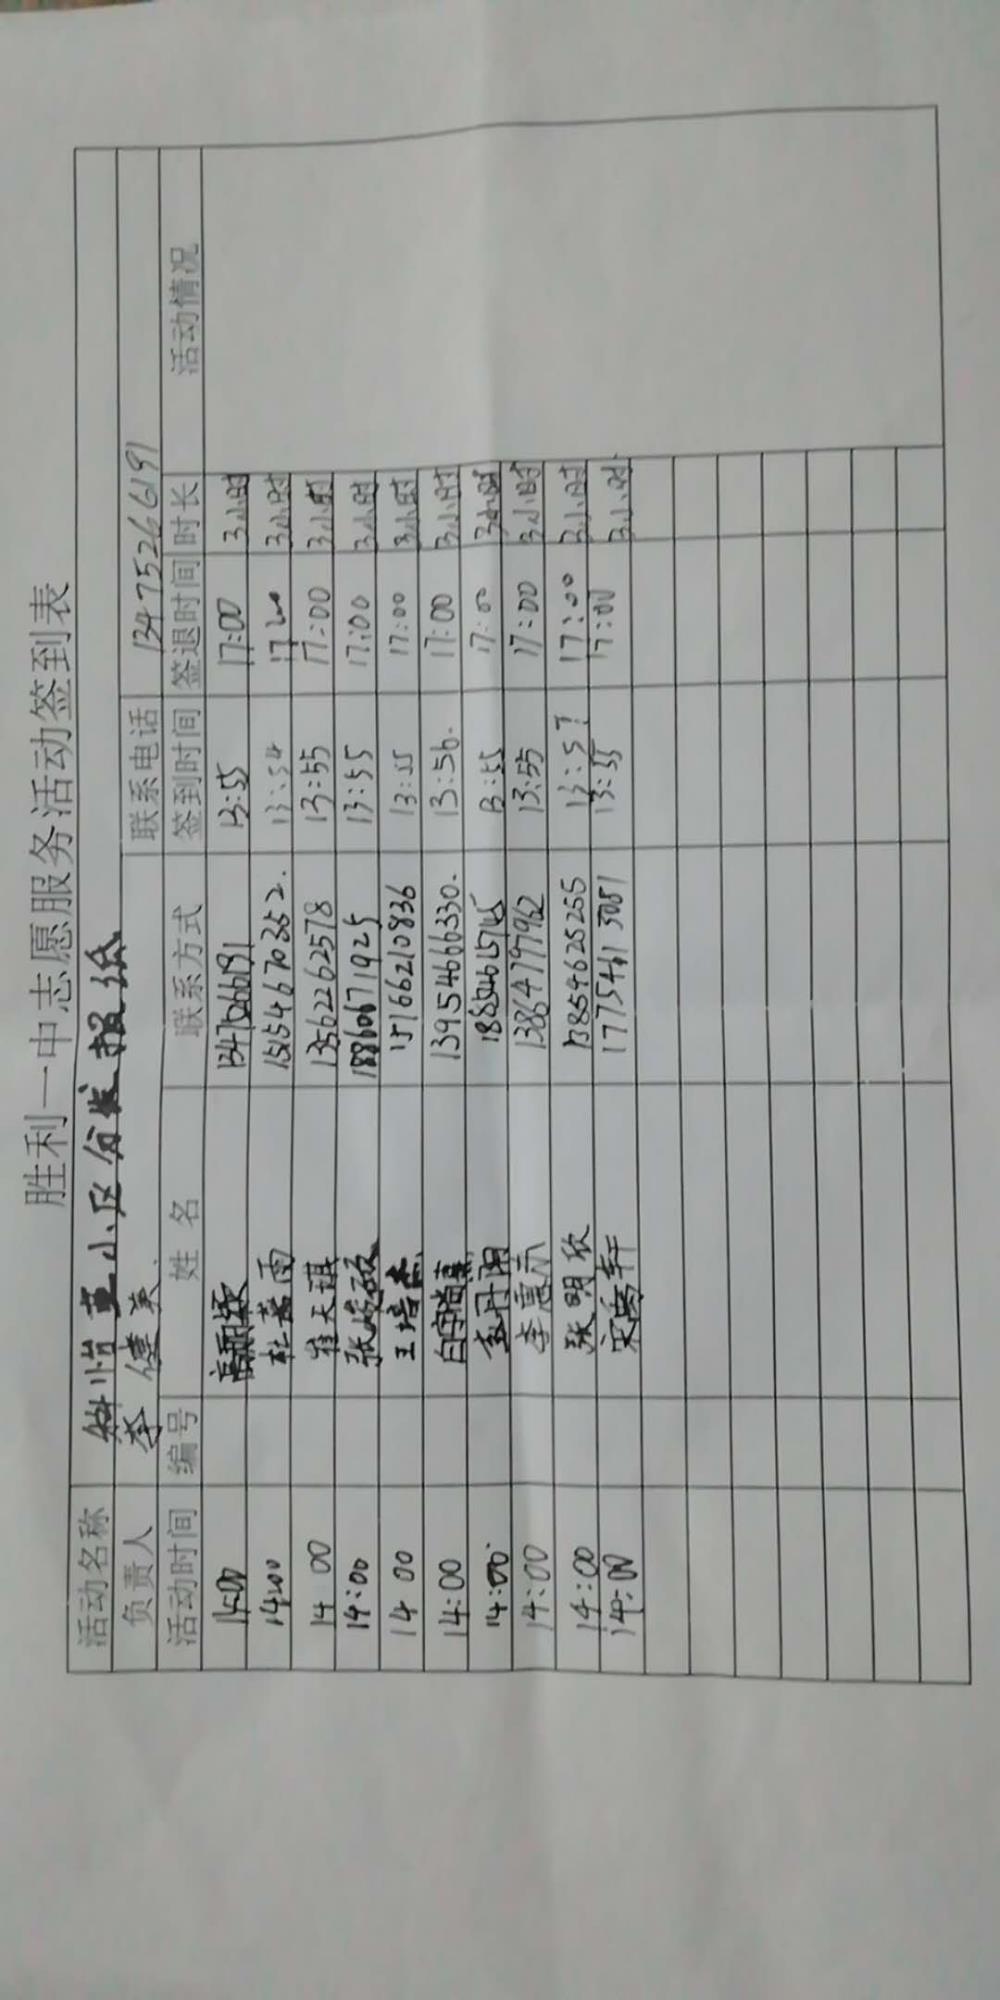 胜利一中志愿服务活动签到表
活动名称 小区分发报纸
负责人 李 联系电话 13475266191
活动时间 编号 姓名 联系方式 签到时间 签退时间 时长 活动情况
14:00 13:55 17:00 3小时
14:00 杜茜雨 15154670352. 13:54 17:00 3小时
14 00 崔天琪 13562262578 13:55 17:00 3小时
14:00 18860671925 13:55 17:00 3小时
14 00 15166210836 13:55 17:00 3小时
14:00 13954666330. 13:56. 17:00 3小时
14:00 13:55 17:00 3小时
14:00 李惠 13864797962 13:55 17:00 3小时
14:00 张明欣 13854625255 13:57 17:00 3小时
14:00 13:55 17:00 3小时